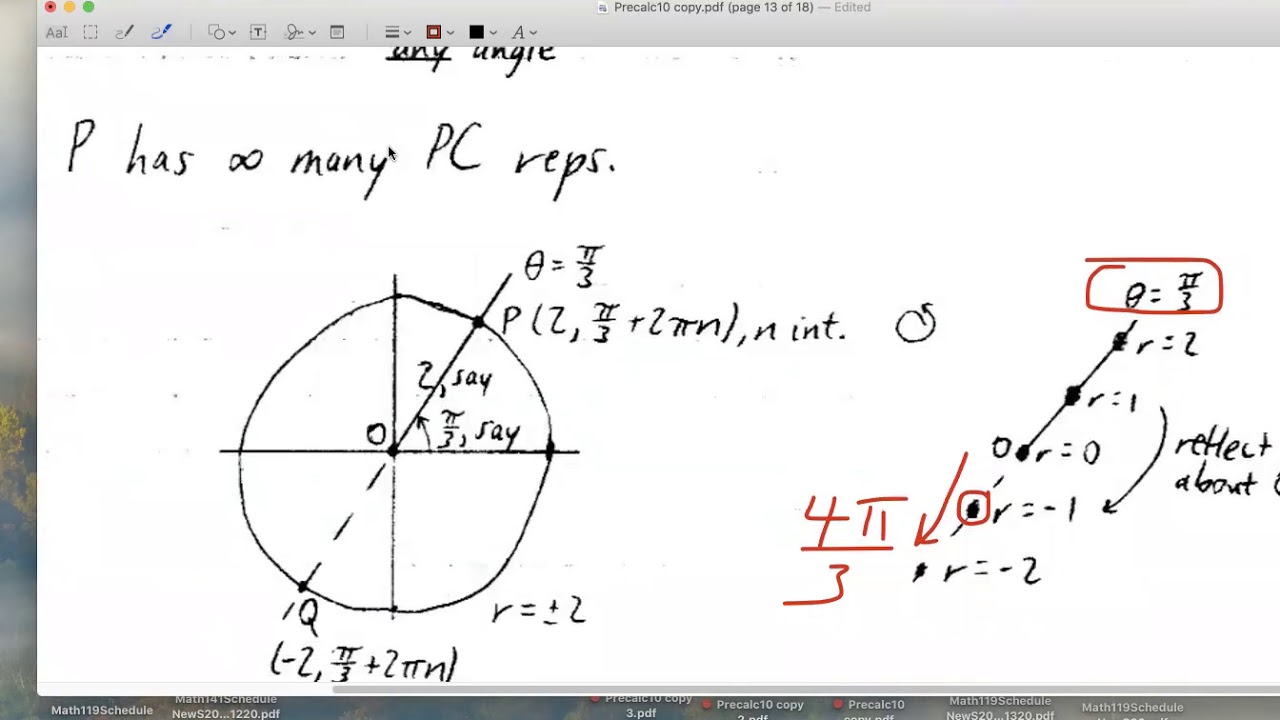 Precalc10 copy.pdf (page 13 of 18) — Edited
AaI
T
A
any angle
P has ∞ many PC reps.
θ = π/3
P(2, π/3 + 2πn), n int.
2, say
π/3, say
O
Q
r = ±2
(-2, π/3 + 2πn)
θ = π/3
r = 2
r = 1
O r = 0
reflect
about
r = -1
4π/3
r = -2
Math119Schedule
Math141Schedule
NewS20...1220.pdf
Precalc10 copy
3.pdf
Precalc10 copy
2.pdf
Precalc10
copy.pdf
Math119Schedule
NewS20...1320.pdf
Math119Schedule